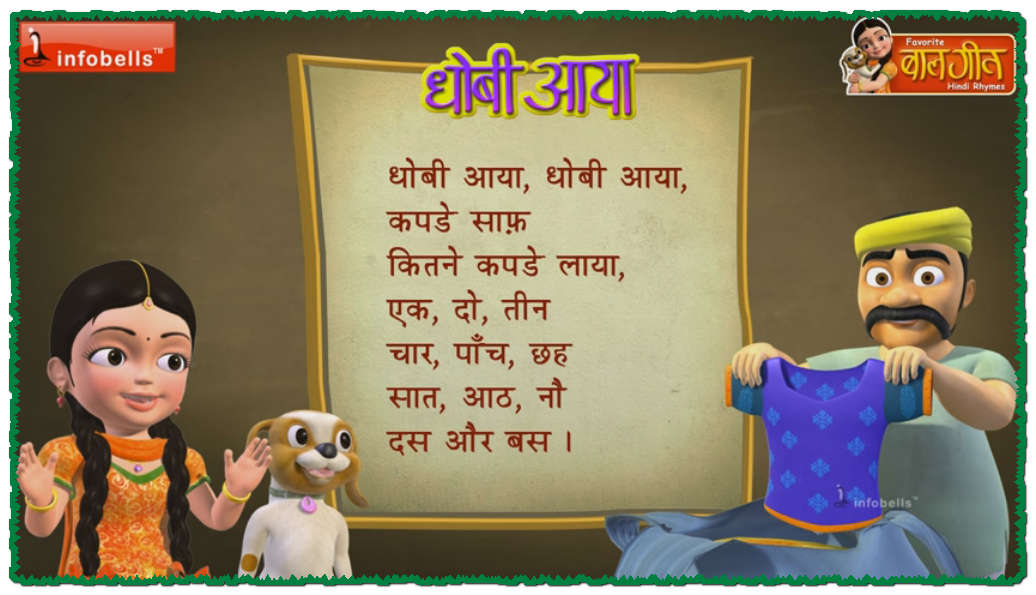 infobells™
Favorite
बालगीत
Hindi Rhymes
धोबी आया
धोबी आया, धोबी आया,
कपडे साफ़
कितने कपडे लाया,
एक, दो, तीन
चार, पाँच, छह
सात, आठ, नौ
दस और बस ।
infobells™